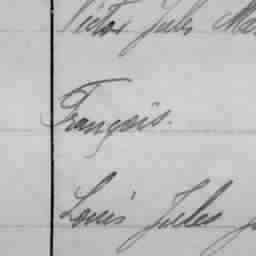 Victor Jules
François.
Louis Jules